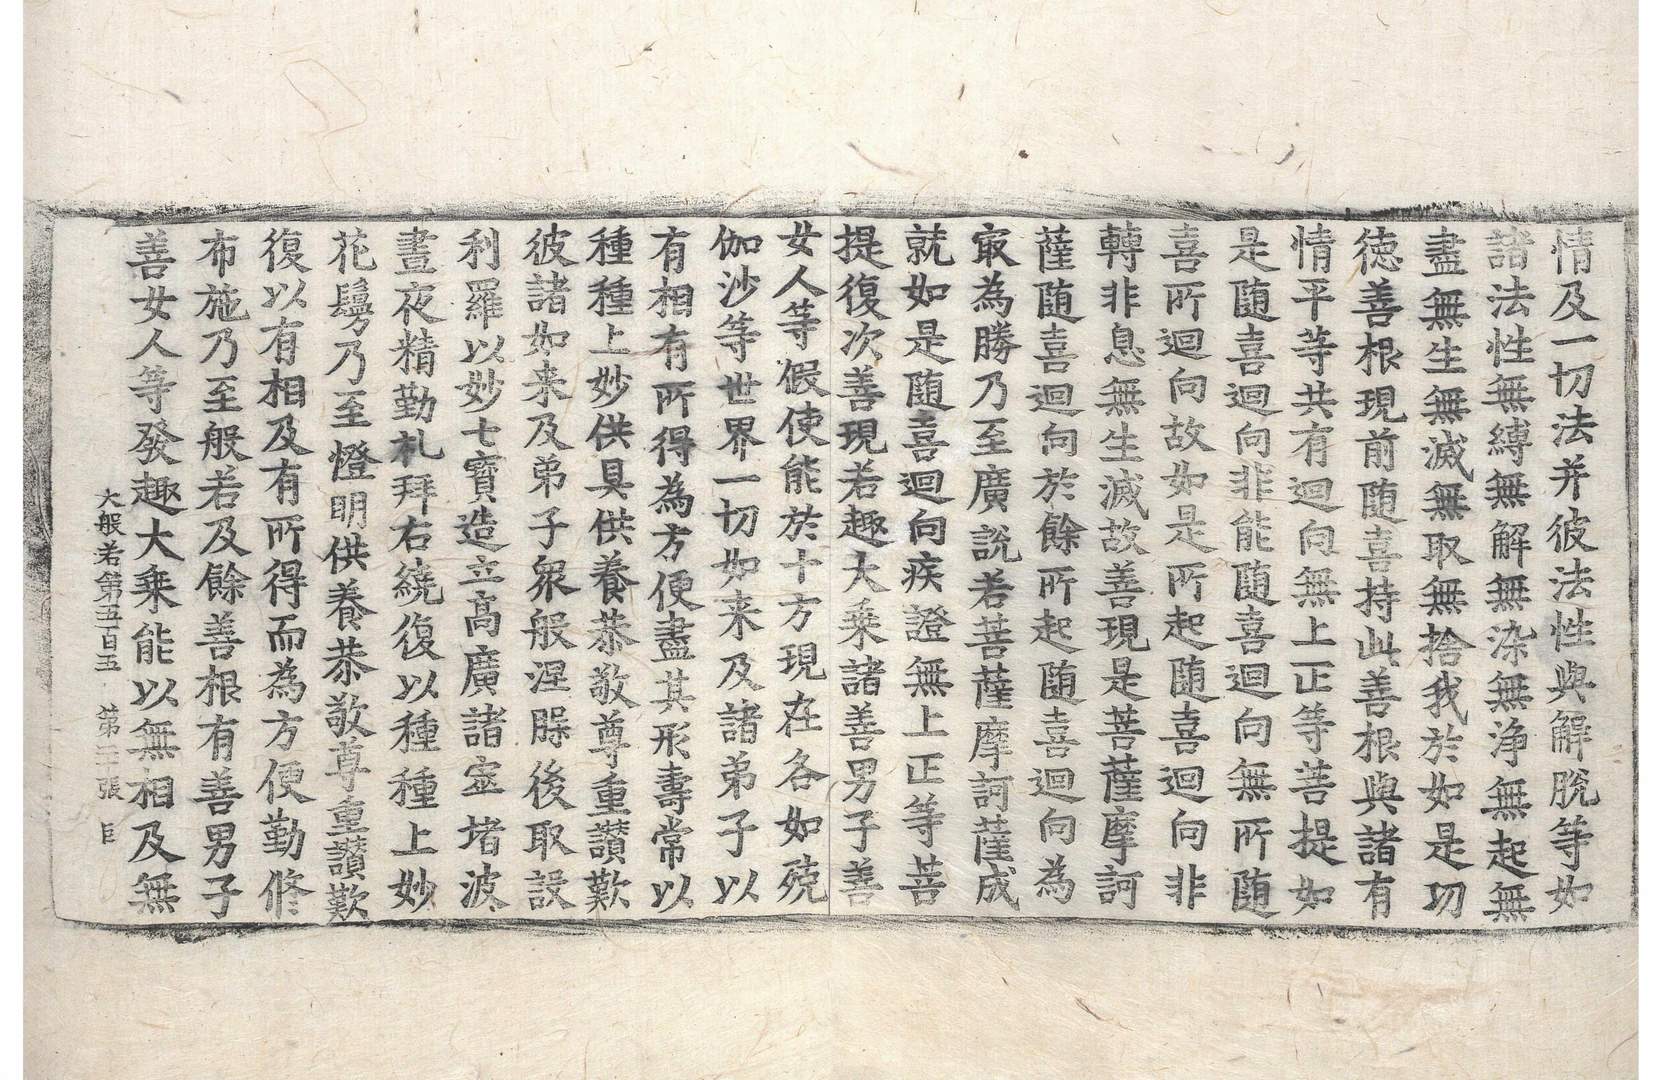 情及一切法并彼法性與解脫等如
諸法性無縛無解無染無淨無起無
盡無生無滅無取無捨我於如是功
德善根現前隨喜持此善根與諸有
情平等共有迴向無上正等菩提如
是隨喜迴向非能隨喜迴向無所隨
喜所迴向故如是所起隨喜迴向非
轉非息無生滅故善現是菩薩摩訶
薩隨喜迴向於餘所起隨喜迴向為
㝡為勝乃至廣說若菩薩摩訶薩成
就如是隨喜迴向疾證無上正等菩
提復次善現若趣大乘諸善男子善
女人等假使能於十方現在各如殑
伽沙等世界一切如来及諸弟子以
有相有所得為方便盡其形壽常以
種種上妙供具供養恭敬尊重讚歎
彼諸如来及弟子衆般涅槃後取設
利羅以妙七寶造立高廣諸窣堵波
晝夜精勤礼拜右繞復以種種上妙
花鬘乃至燈明供養恭敬尊重讚歎
復以有相及有所得而為方便勤修
布施乃至般若及餘善根有善男子
善女人等發趣大乘能以無相及無
大般若第五百五 第二十張 巨